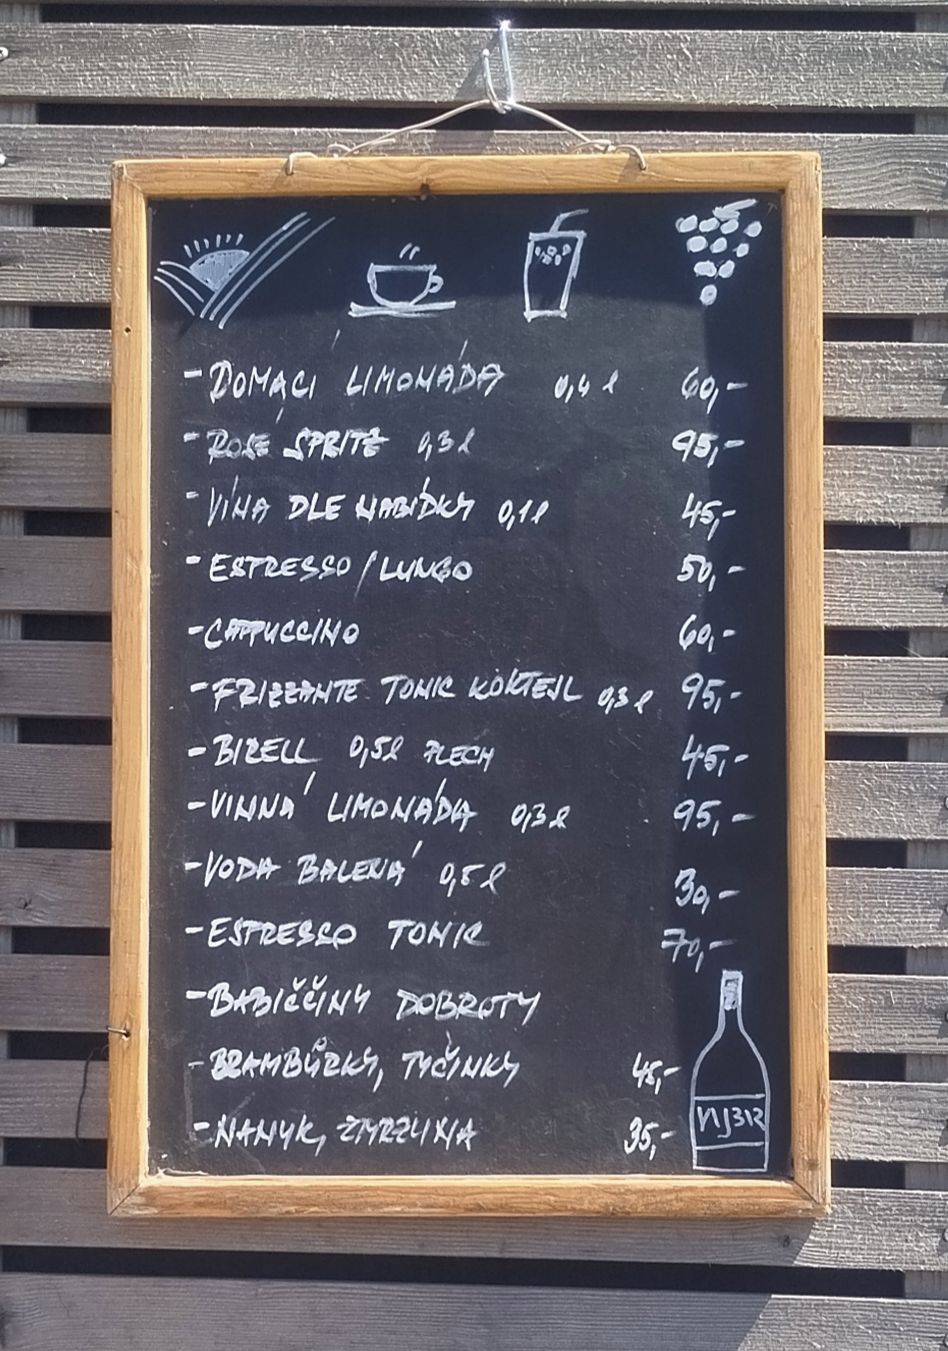 - DOMÁCÍ LIMONÁDA 0,4 l 60,-
- ROSÉ SPRITZ 0,3 l 95,-
- VÍNA DLE NABÍDKY 0,1 l 45,-
- ESPRESSO/LUNGO 50,-
- CAPPUCCINO 60,-
- FRIZZANTE TONIC KOKTEJL 0,3 l 95,-
- BIRELL 0,5 l PLECH 45,-
- VINNÁ LIMONÁDA 0,3 l 95,-
- VODA BALENÁ 0,5 l 30,-
- ESPRESSO TONIC 70,-
- BABIČČINY DOBROTY
- BRAMBŮRKY, TYČINKY 45,-
- NANUK, ZMRZLINA 35,-